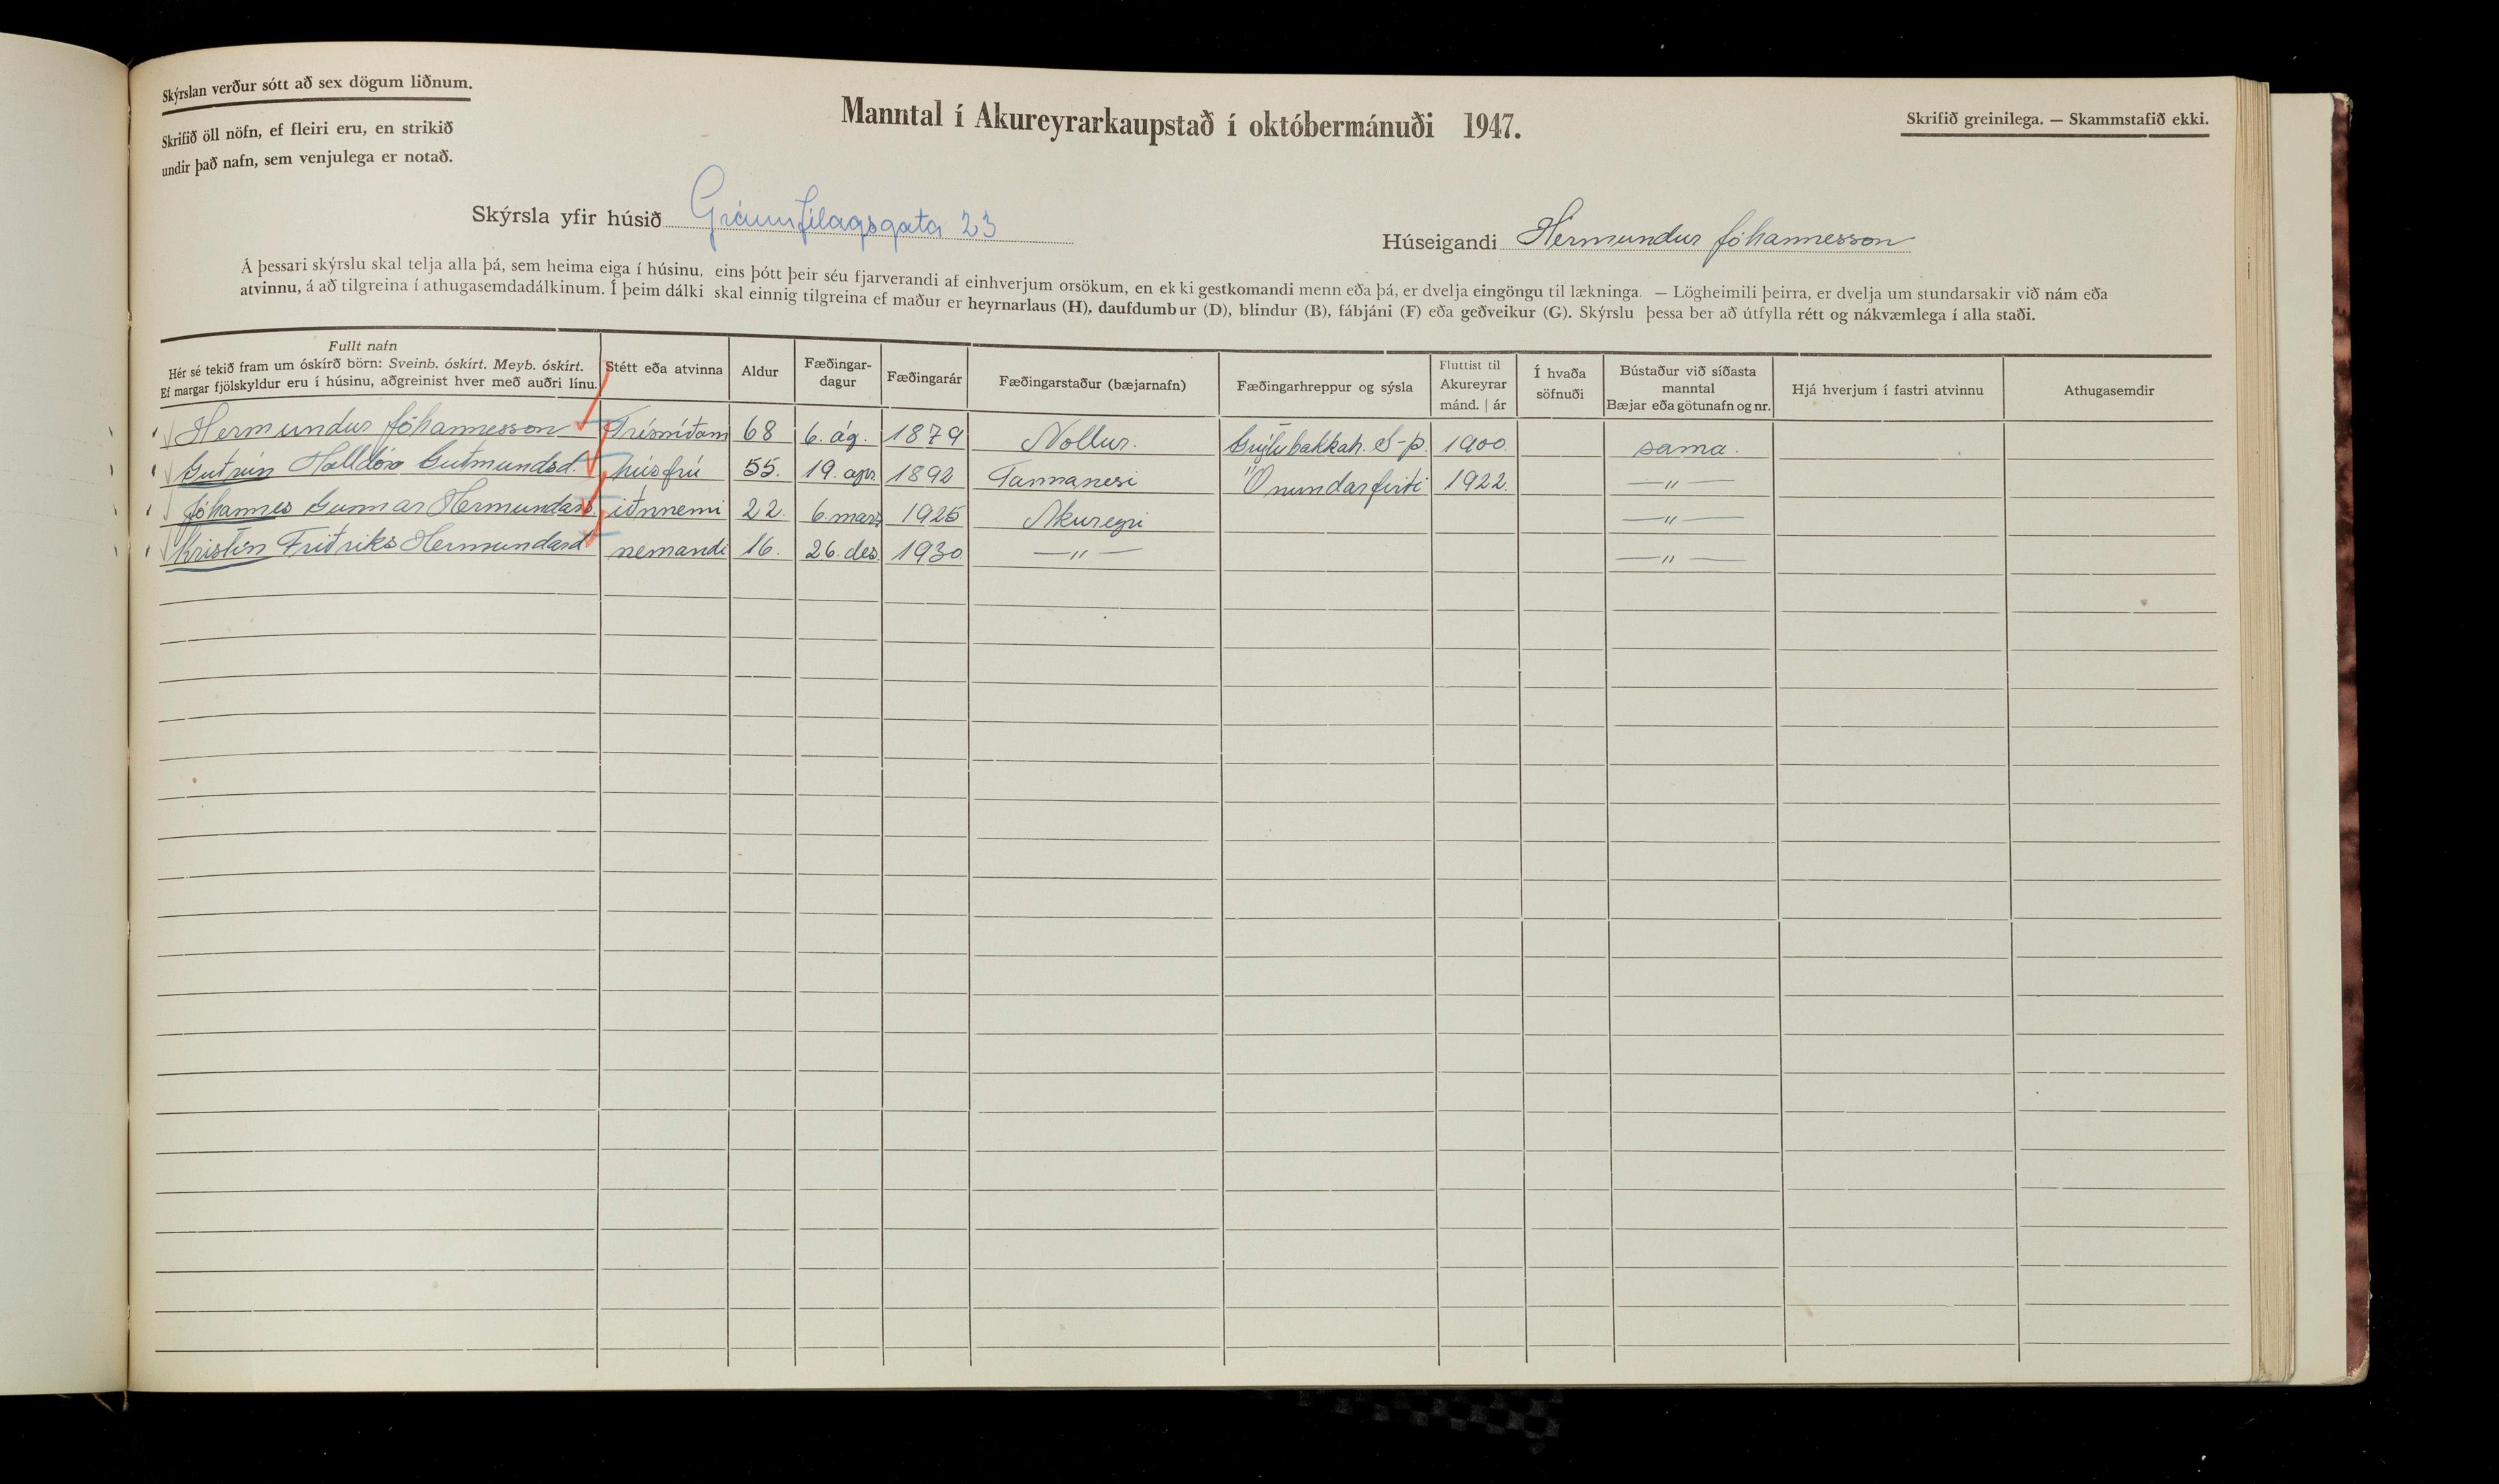 Skýrslan verður sótt að sex dögum liðnum.
Skrifið öll nöfn, ef fleiri eru, en strikið
undir það nafn, sem venjulega er notað.
Manntal í Akureyrarkaupstað í októbermánuði 1947.
Skrifið greinilega. — Skammstafið ekki.
Skýrsla yfir húsið Gránufélagsgata 23
Húseigandi Hermundur Jóhannesson
Á þessari skýrslu skal telja alla þá, sem heima eiga í húsinu, eins þótt þeir séu fjarverandi af einhverjum orsökum, en ekki gestkomandi menn eða þá, er dvelja eingöngu til lækninga. — Lögheimili þeirra, er dvelja um stundarsakir við nám eða
atvinnu, á að tilgreina í athugasemdadálkinum. Í þeim dálki skal einnig tilgreina ef maður er heyrnarlaus (H), daufdumbur (D), blindur (B), fábjáni (F) eða geðveikur (G). Skýrslu þessa ber að útfylla rétt og nákvæmlega í alla staði.
Fullt nafn Hér sé tekið fram um óskírð börn: Sveinb. óskírt. Meyb. óskírt. Ef margar fjölskyldur eru í húsinu, aðgreinist hver með auðri línu. Stétt eða atvinna Aldur Fæðingar-dagur Fæðingarár Fæðingarstaður (bæjarnafn) Fæðingarhreppur og sýsla Fluttist til Akureyrar mánd. | ár Í hvaða söfnuði Bústaður við síðasta manntal Bæjar eða götunafn og nr. Hjá hverjum í fastri atvinnu Athugasemdir
Hermundur Jóhannesson Trésmíðam 68 6. ág. 1879 Nollur. Grýtubakkah. S-þ. 1900. sama.
Guðrún Halldóra Guðmundsd. húsfrú 55. 19. apr. 1892 Tannanesi Önundarfirði 1922. —〃—
Jóhannes Gunnar Hermundars. iðnnemi 22. 6. mars 1925 Akureyri —〃—
Kristín Friðriks Hermundard nemandi 16. 26. des. 1930. —〃— —〃—